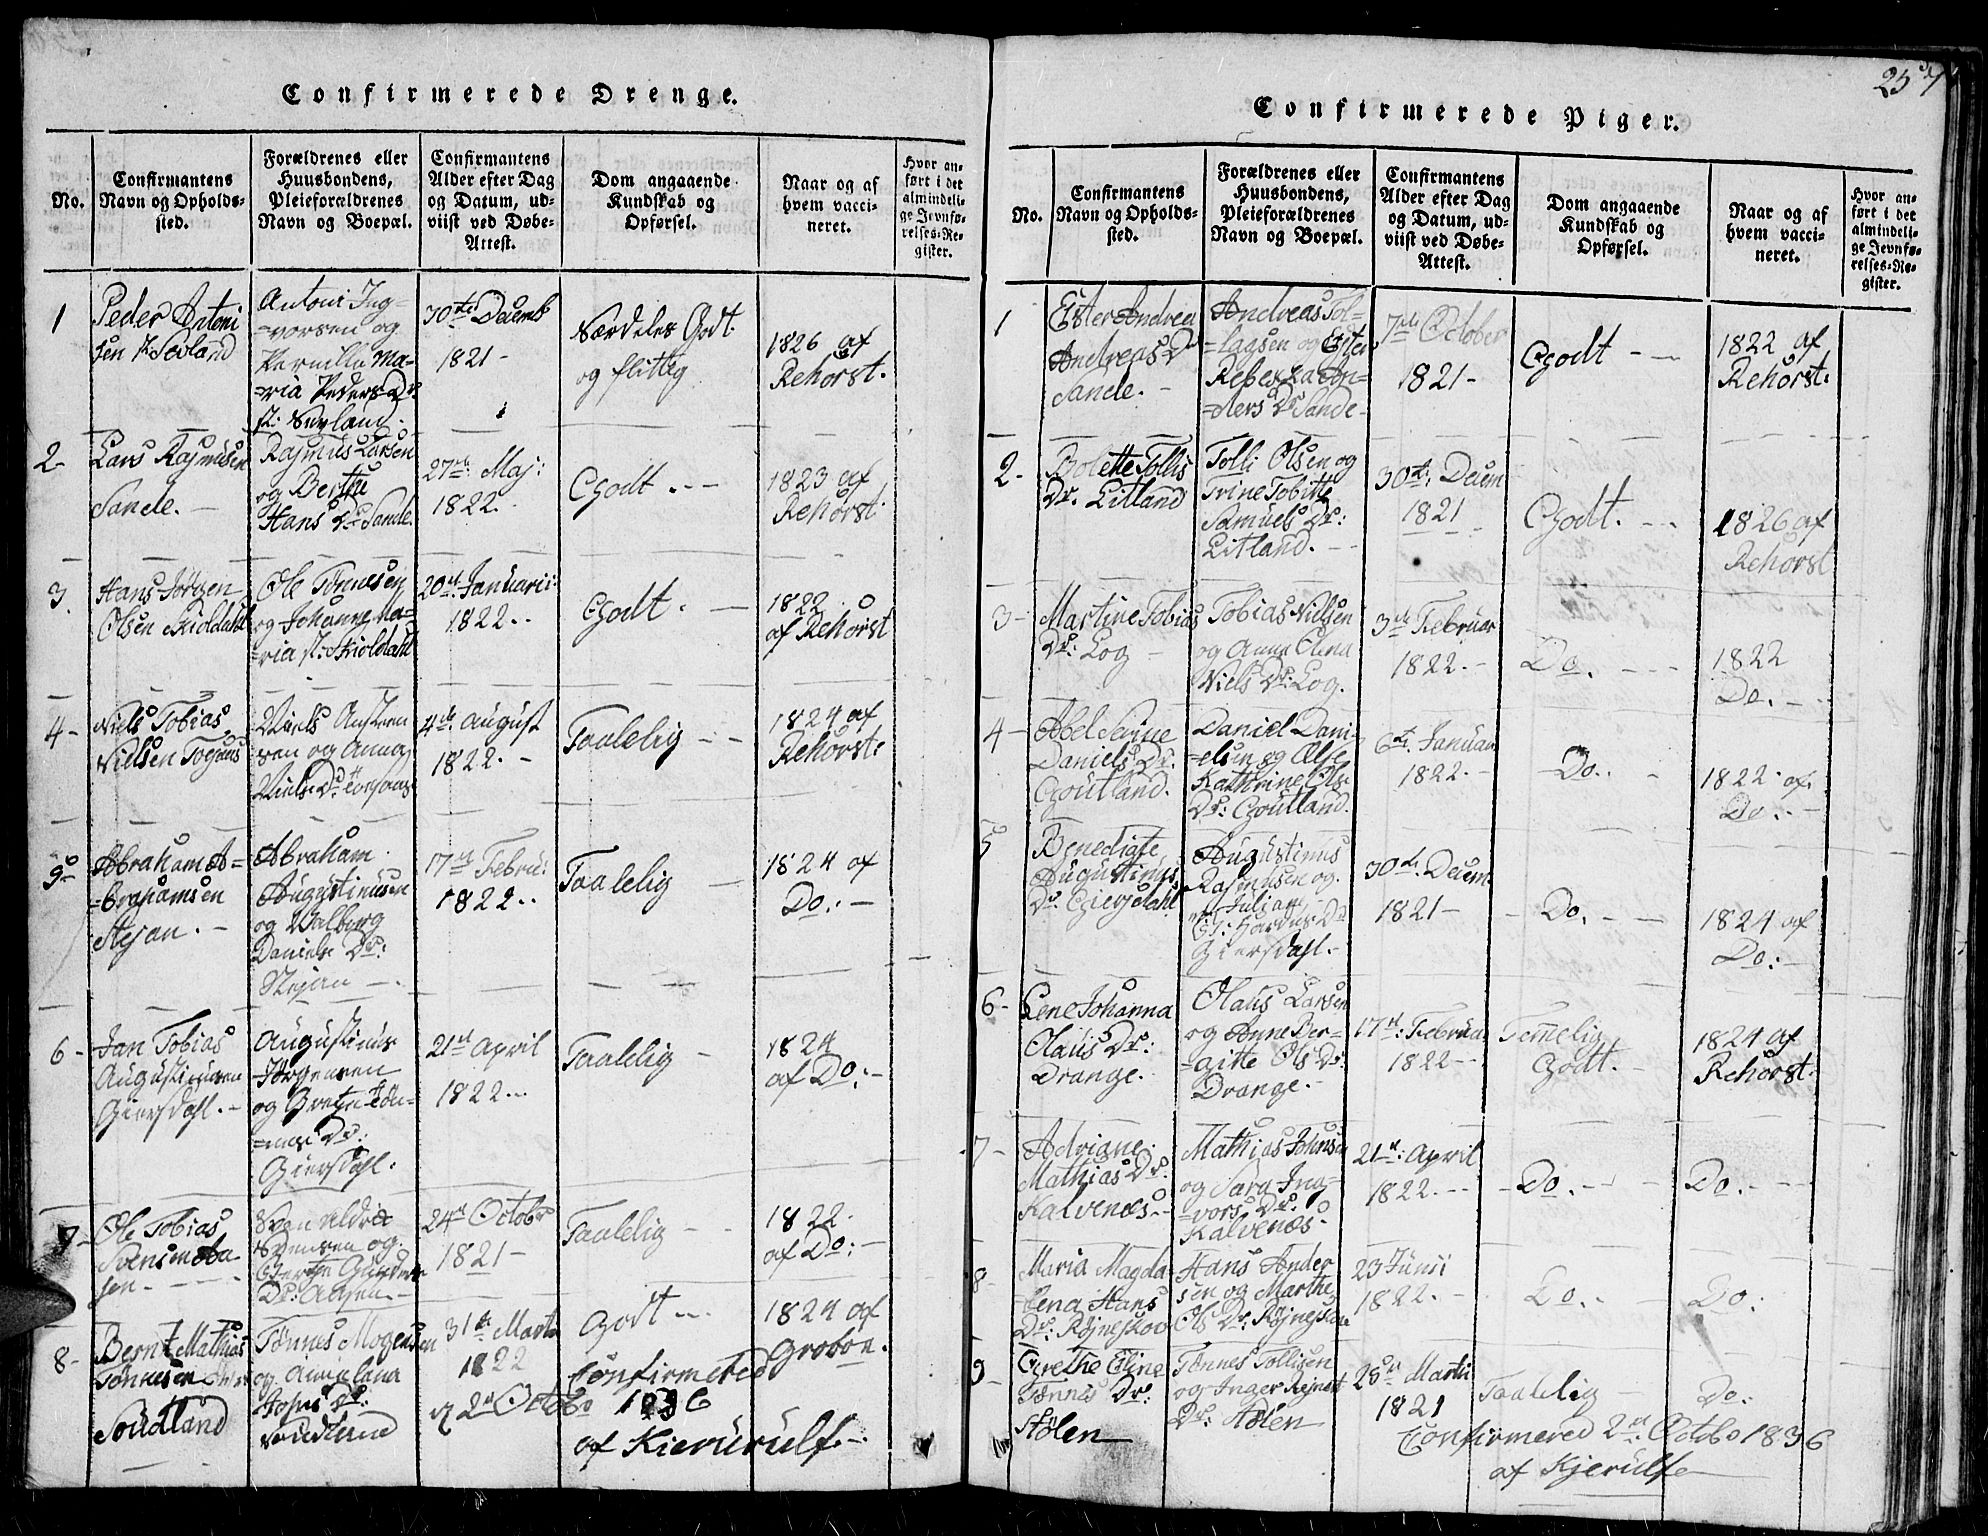 Confirmerede Drenge.
No.
Confirmantens
Navn og Opholds-
sted.
Forældrenes eller
Huusbondens,
Pleieforældrenes
Navn og Boepæl.
Confirmantens
Alder efter Dag
og Datum, ud-
viist ved Døbe-
Attest.
Dom angaaende
Kundskab og
Opførsel.
Naar og af
hvem vacci-
neret.
Hvor an-
ført i det
almindeli-
ge Jevnfø-
relses-Re-
gister.
1
Peder Antoni
sen
Antoni Ing=
=vorsen og
Pernille Ma-
=ria Peders Dr.
30te Decemb
1821 -
Særdeles Godt
og flittig
1826 af
Rehorst.
2-
Lars Rasmusen
Sande. -
Rasmus Larsen
og Berthe
Hans Dr Sande.
27de: Maj:
1822.
Godt. --
1823 af
Rehorst.
3.
Hans Jørgen
Olsen Skioldahl
Ole Tønnesen
og Johanne Ma=
=ria Skioldahl
20de Januarii:
1822. -
Godt. -
1822
af Rehorst
4-
Niels Tobias
Nielsen
Niels
sen og Anna
Niels Dr
4de August
1822. -
Taalelig --
1824 af
Rehorst.
5-
Abraham A=
=brahamsen
Abraham
Augustinusen
og Walborg
Daniels Dr:
17de Febru:
1822. -
Taalelig -
1824 af
Do. -
6-
Jan Tobias
Augustinusen
Giersdahl. -
Augustinus
Jørgensen
og
Dr:
Giersdahl.
21de April
1822. --
Taalelig -
1824
af Do. -
7-
Ole Tobias
Svensen Aa-
sen. -
Sven
Svensen og
Berthe Gunders
Dr: Aasen. -
24de October
1821 -
Taalelig --
1822.
af Do: -
8-
Bernt Mathias
Tønnesen
Soudland
Tønnes Mogensen
og
Dr:
Soudland
31te Marti
1822
Godt --
1824 af
Groboe.
Confirmered
d 2de Octobr 1836
af Kierurulf. -
Confirmerede Piger.
257
No.
Confirmantens
Navn og Opholds-
sted.
Forældrenes eller
Huusbondens,
Pleieforældrenes
Navn og Boepæl.
Confirmantens
Alder efter Dag
og Datum, ud-
viist ved Døbe-
Attest.
Dom angaaende
Kundskab og
Opførsel.
Naar og af
hvem vacci-
neret.
Hvor an-
ført i det
almindeli-
ge Jevnfø-
relses-Re-
gister.
1
Ester Andrea
Andreas Dr
Sande. -
Andreas Tol=
=lagsen og Ester
Rebekka An=
=ders Dr Sande-
7de October
1821 -
Godt --
1822 af
Rehorst.
2-
Bolette Tollis
Dr. Litland
Tolli Olsen og
Trine Tobitte
Samuels Dr:
Litland. -
30te. Decem
1821
Godt. --
1826 af
Rehorst
3-
Martine Tobias
Dr: Log -
Tobias Nielsen
og Anna Elena
Niels Dr: Log.
3de Februar
1822. -
Do. --
1822
Do. -
4-
Abel Serine
Daniels Dr:
Goutland.
Daniel Dani-
=elsen og Else
Kathrine Ols
Dr: Goutland.
6te Januar
1822. -
Do. -
1822. af
Do. -
5
Benedigte
Augustinus
Dr. Giersdahl
Augustinus
Rasmusen og
Giersdahl. -
30te Decem.
1821 -
Do. --
1824 af
Do: -
6-
Lene Johanna
Olaus Dr:
Drange. -
Olaus Larsen
og Anne Ber-
=gitte Ols Dr:
Drange. -
17de: Februa
1822 --
Temelig
Godt. -
1824 af
Rehorst.
7-
Adriane
Mathias Dr.
Kalvenæs. -
Mathias Johnsen
og Sara Ing=
=vors Dr:
Kalvenæs. -
21de: April
1822. --
Do. --
Do. --
8-
Maria Magda
lena Hans
Dr: Røjneskov
Hans Ander
sen og Marthe
Ols Dr: Røjneskov
23 Junii
1822. -
Do. --
Do:
9-
Grethe Eline
Tønnes Dr:
Stølen
Tønnes Tollisen
og Inger Rejnert
Dr: Stølen
28de Marti
1821
Taalelig -
Do:
Confirmered 2de Octobr 1836
af Kjerulf